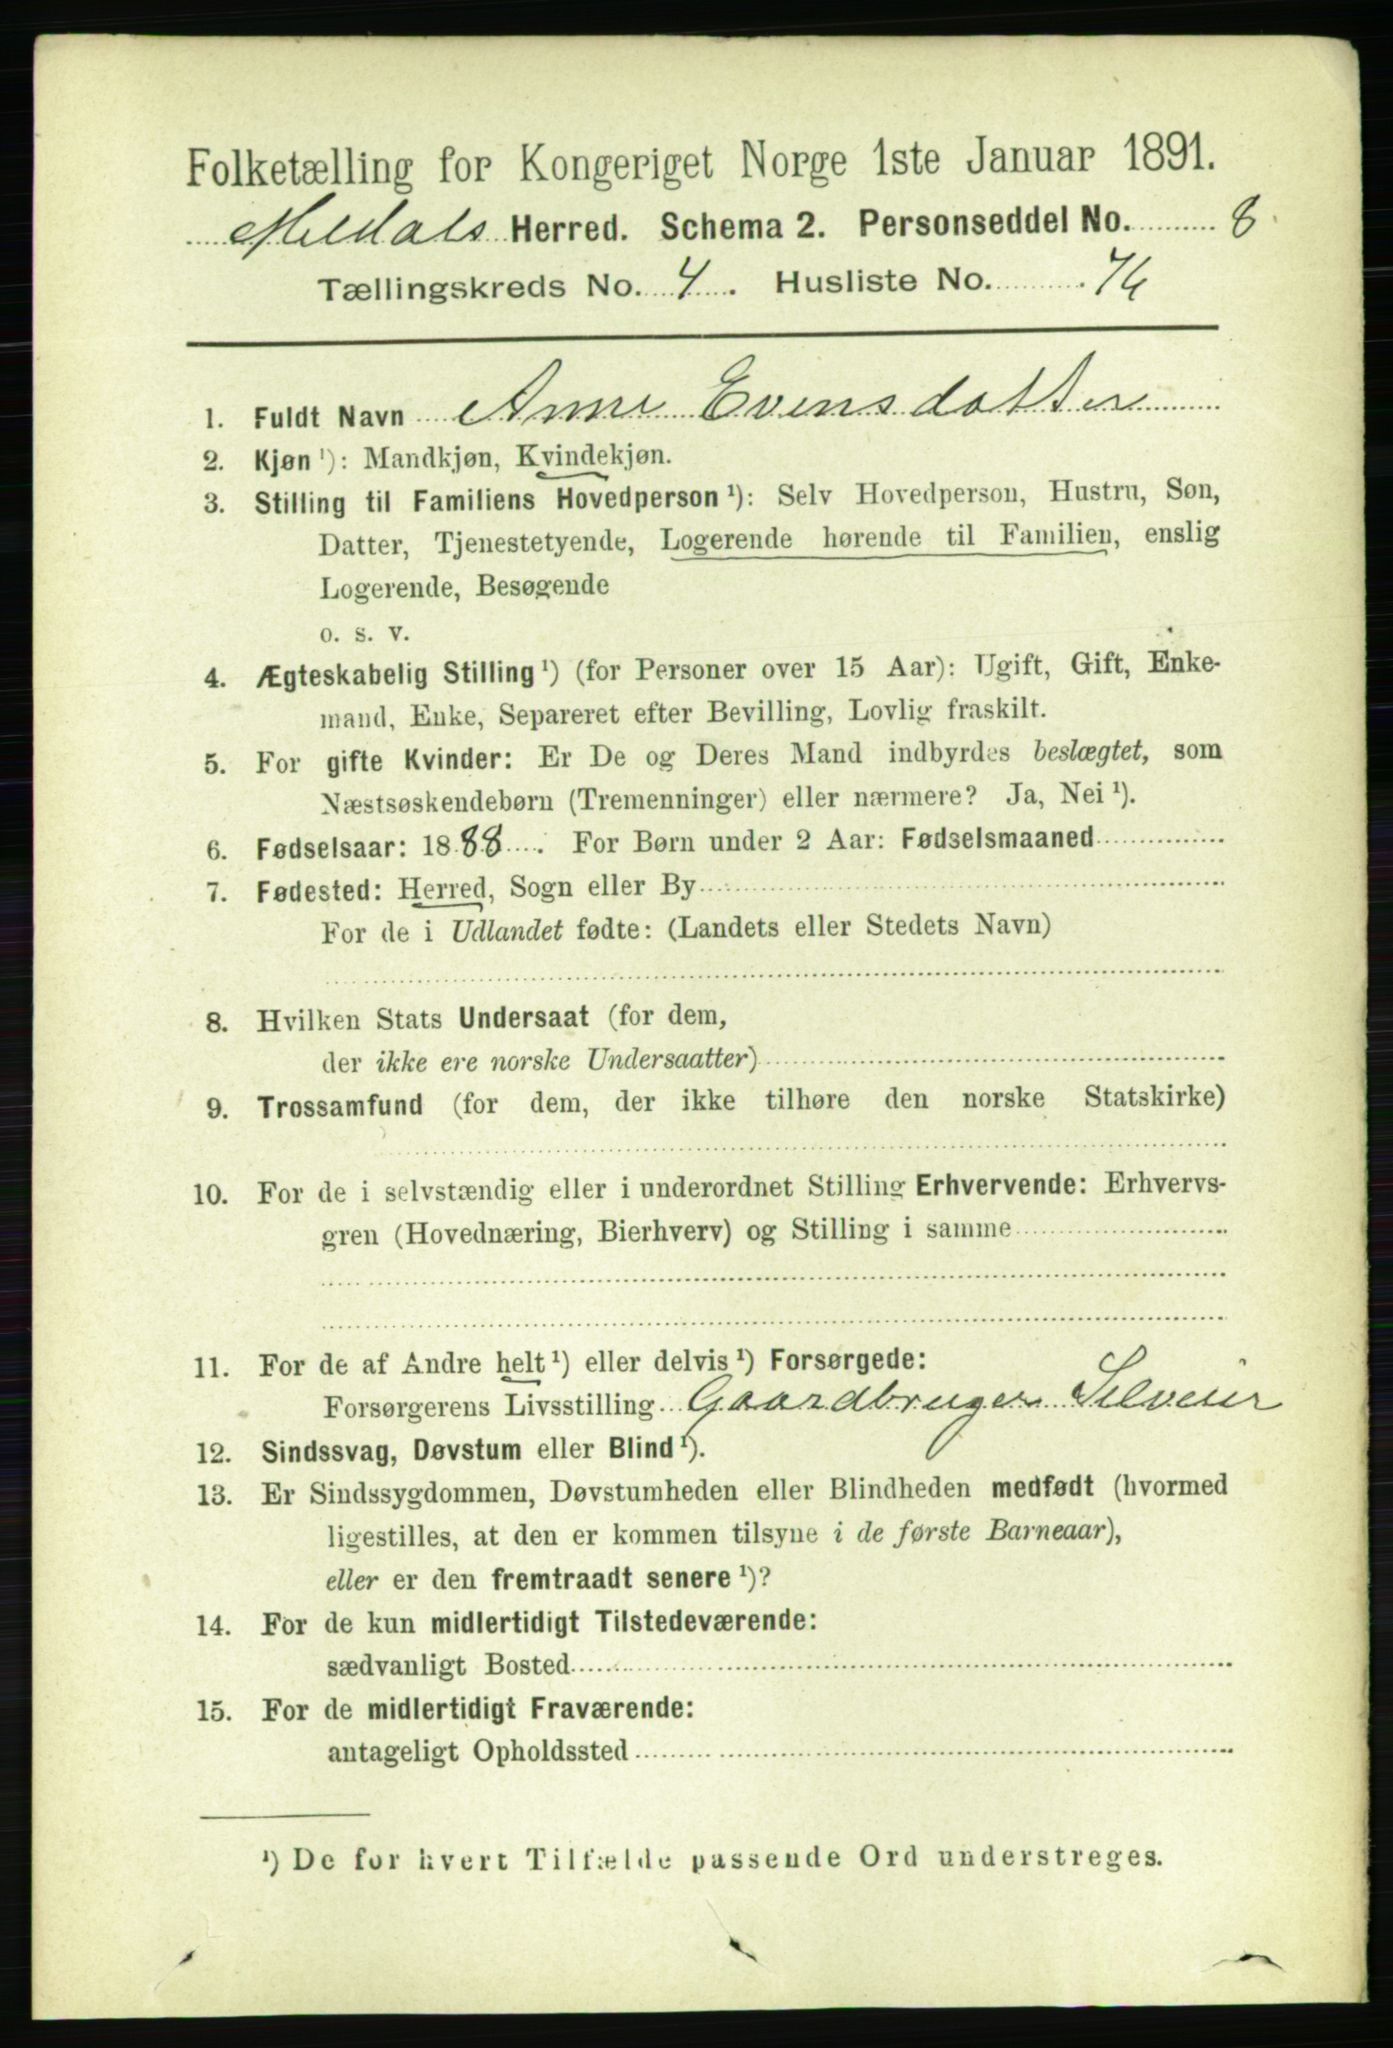 Folketælling for Kongeriget Norge 1ste Januar 1891.
Meldals Herred. Schema 2. Personseddel No. 8
Tællingskreds No. 4. Husliste No. 74
1. Fuldt Navn Anne Evensdatter
2. Kjøn ¹): Mandkjøn, Kvindekjøn.
3. Stilling til Familiens Hovedperson ¹): Selv Hovedperson, Hustru, Søn,
Datter, Tjenestetyende, Logerende hørende til Familien, enslig
Logerende, Besøgende
o. s. v.
4. Ægteskabelig Stilling ¹) (for Personer over 15 Aar): Ugift, Gift, Enke-
mand, Enke, Separeret efter Bevilling, Lovlig fraskilt.
5. For gifte Kvinder: Er De og Deres Mand indbyrdes beslægtet, som
Næstsøskendebørn (Tremenninger) eller nærmere? Ja, Nei ¹).
6. Fødselsaar: 1888. For Børn under 2 Aar: Fødselsmaaned
7. Fødested: Herred, Sogn eller By
For de i Udlandet fødte: (Landets eller Stedets Navn)
8. Hvilken Stats Undersaat (for dem,
der ikke ere norske Undersaatter)
9. Trossamfund (for dem, der ikke tilhøre den norske Statskirke)
10. For de i selvstændig eller i underordnet Stilling Erhvervende: Erhvervs-
gren (Hovednæring, Bierhverv) og Stilling i samme
11. For de af Andre helt ¹) eller delvis ¹) Forsørgede:
Forsørgerens Livsstilling Gaardbruger Selveier
12. Sindssvag, Døvstum eller Blind ¹).
13. Er Sindssygdommen, Døvstumheden eller Blindheden medfødt (hvormed
ligestilles, at den er kommen tilsyne i de første Barneaar),
eller er den fremtraadt senere ¹)?
14. For de kun midlertidigt Tilstedeværende:
sædvanligt Bosted
15. For de midlertidigt Fraværende:
antageligt Opholdssted
¹) De for hvert Tilfælde passende Ord understreges.